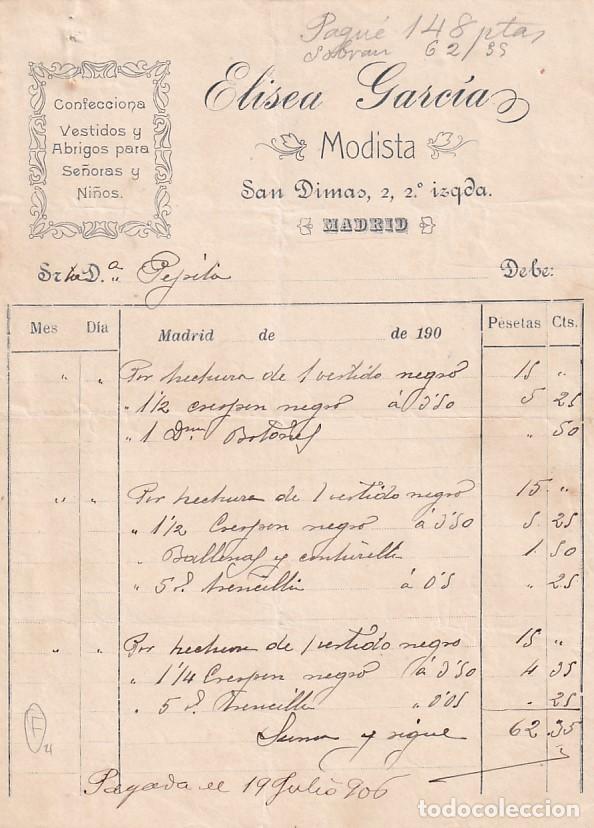 Pagué 148 ptas
Sobran 62/35
Confecciona
Vestidos y
Abrigos para
Señoras y
Niños.
Elisea García
Modista
San Dimas, 2, 2.º izqda.
MADRID
Srta D.ª Pepita Debe:
Mes Día Madrid de de 190 Pesetas Cts.
" " Por hechura de 1 vestido negro 15 "
" 1 1/2 crespon negro á 3'50 5 25
" 1 Dna Botones " 50
" " Por hechura de 1 vestido negro 15 "
" 1 1/2 Crespon negro á 3'50 5 25
" Ballenas y cinturilla 1 50
" 5 trencilla á 0'5 " 25
" " Por hechura de 1 vestido negro 15 "
" 1 1/4 Crespon negro á 3'50 4 35
" 5 trencilla " 0'05 " 25
Suma y sigue 62 35
F
Pagada el 19 Julio 906
todocoleccion